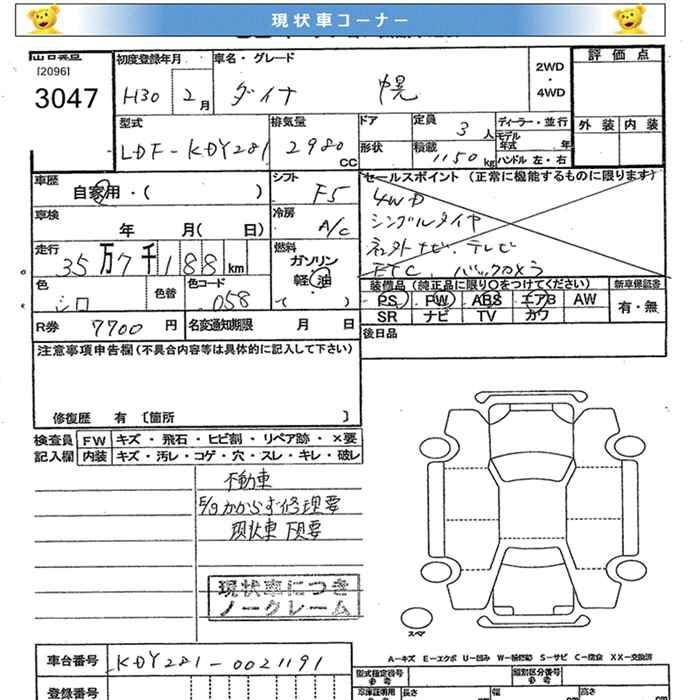 現状車コーナー
[2096]
3047
初度登録年月
H30 2月
車名・グレード
ダイナ 幌
2WD
・
4WD
評価点
外装 内装
型式
LDF-KDY281
排気量
2980 CC
ドア
形状
定員
3人
積載
1150 kg
ディーラー・並行
モデル
年式 年
ハンドル 左・右
車歴
自家用・( )
シフト
F5
セールスポイント (正常に機能するものに限ります)
4WD
シングルタイヤ
社外ナビ、テレビ
ETC、バックカメラ
車検
年 月( 日)
冷房
A/C
走行
35万7千188km
燃料
ガソリン
軽油
( )
色
シロ
色替
色コード
058
装備品 (純正品に限り○をつけてください)
新車保証書
PS PW ABS エアB AW
SR ナビ TV カワ
有・無
R券 7700円
名変通知期限 月 日
後日品
注意事項申告欄 (不具合内容等は具体的に記入して下さい)
修復歴 有 〔箇所 〕
検査員
記入欄
FW キズ・飛石・ヒビ割・リペア跡・×要
内装 キズ・汚レ・コゲ・穴・スレ・キレ・破レ
不動車
E/gかからず修理要
現状車 下見要
現状車につき
ノークレーム
スペア
A-キズ E-エクボ U-凹み W-補修跡 S-サビ C-腐食 XX-交換済
車台番号 KDY281-0021191
登録番号
型式指定番号
参考
類別区分番号
参考
長さ
幅
高さ